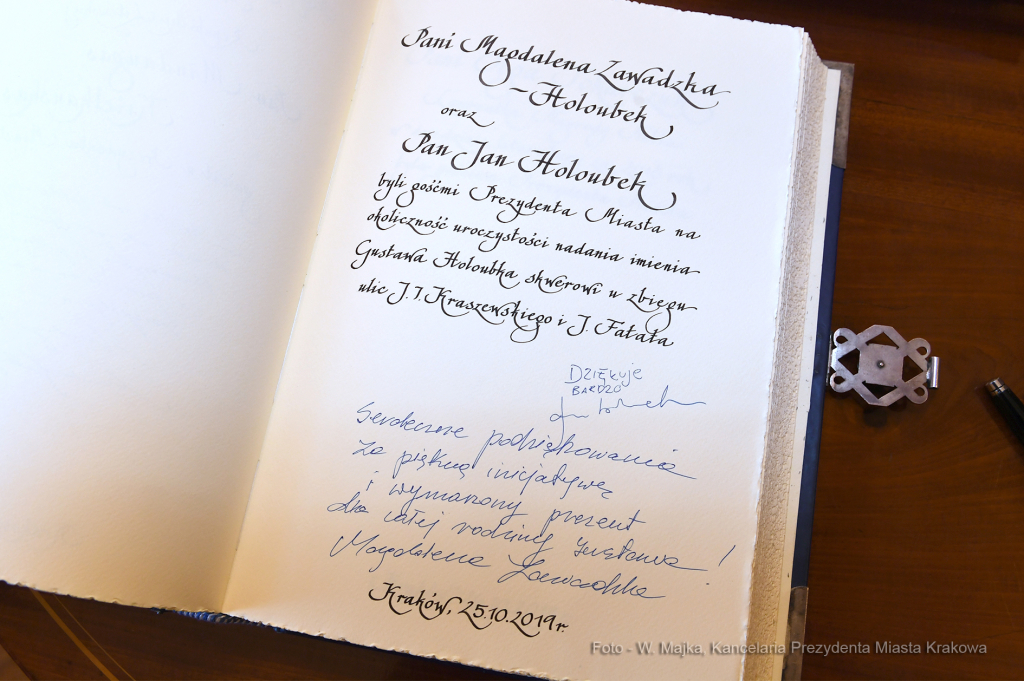 Pani Magdalena Zawadzka
- Holoubek
oraz
Pan Jan Holoubek
byli gośćmi Prezydenta Miasta na
okoliczność uroczystości nadania imienia
Gustawa Holoubka skwerowi u zbiegu
ulic J. I. Kraszewskiego i J. Fałata
DZIĘKUJE
BARDZO
Serdeczne podziękowania
za piękną inicjatywę
i wymarzony prezent
dla całej rodziny Gustawa!
Magdalena Zawadzka
Kraków, 25.10.2019 r.
Foto - W. Majka, Kancelaria Prezydenta Miasta Krakowa